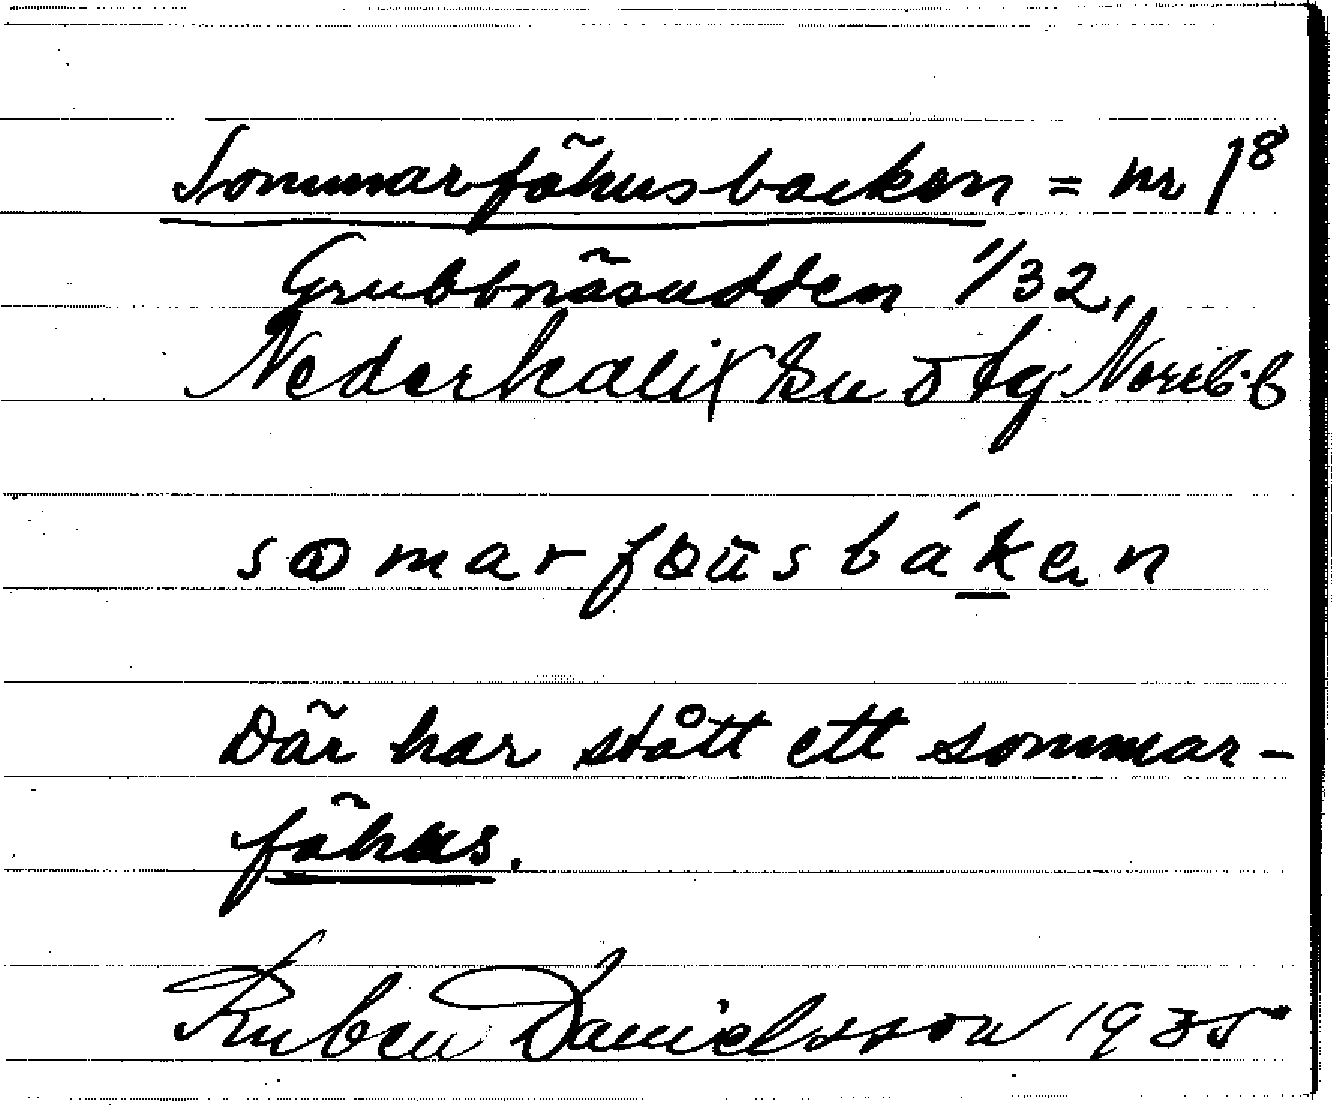 Sommarfähusbacken = nr 18
Grubbnäsudden 1/32,
Nederkalix sn o tg Norrb.
somarfɷusbáken
Där har stått ett sommar-
fähus.
Ruben Danielsson 1935